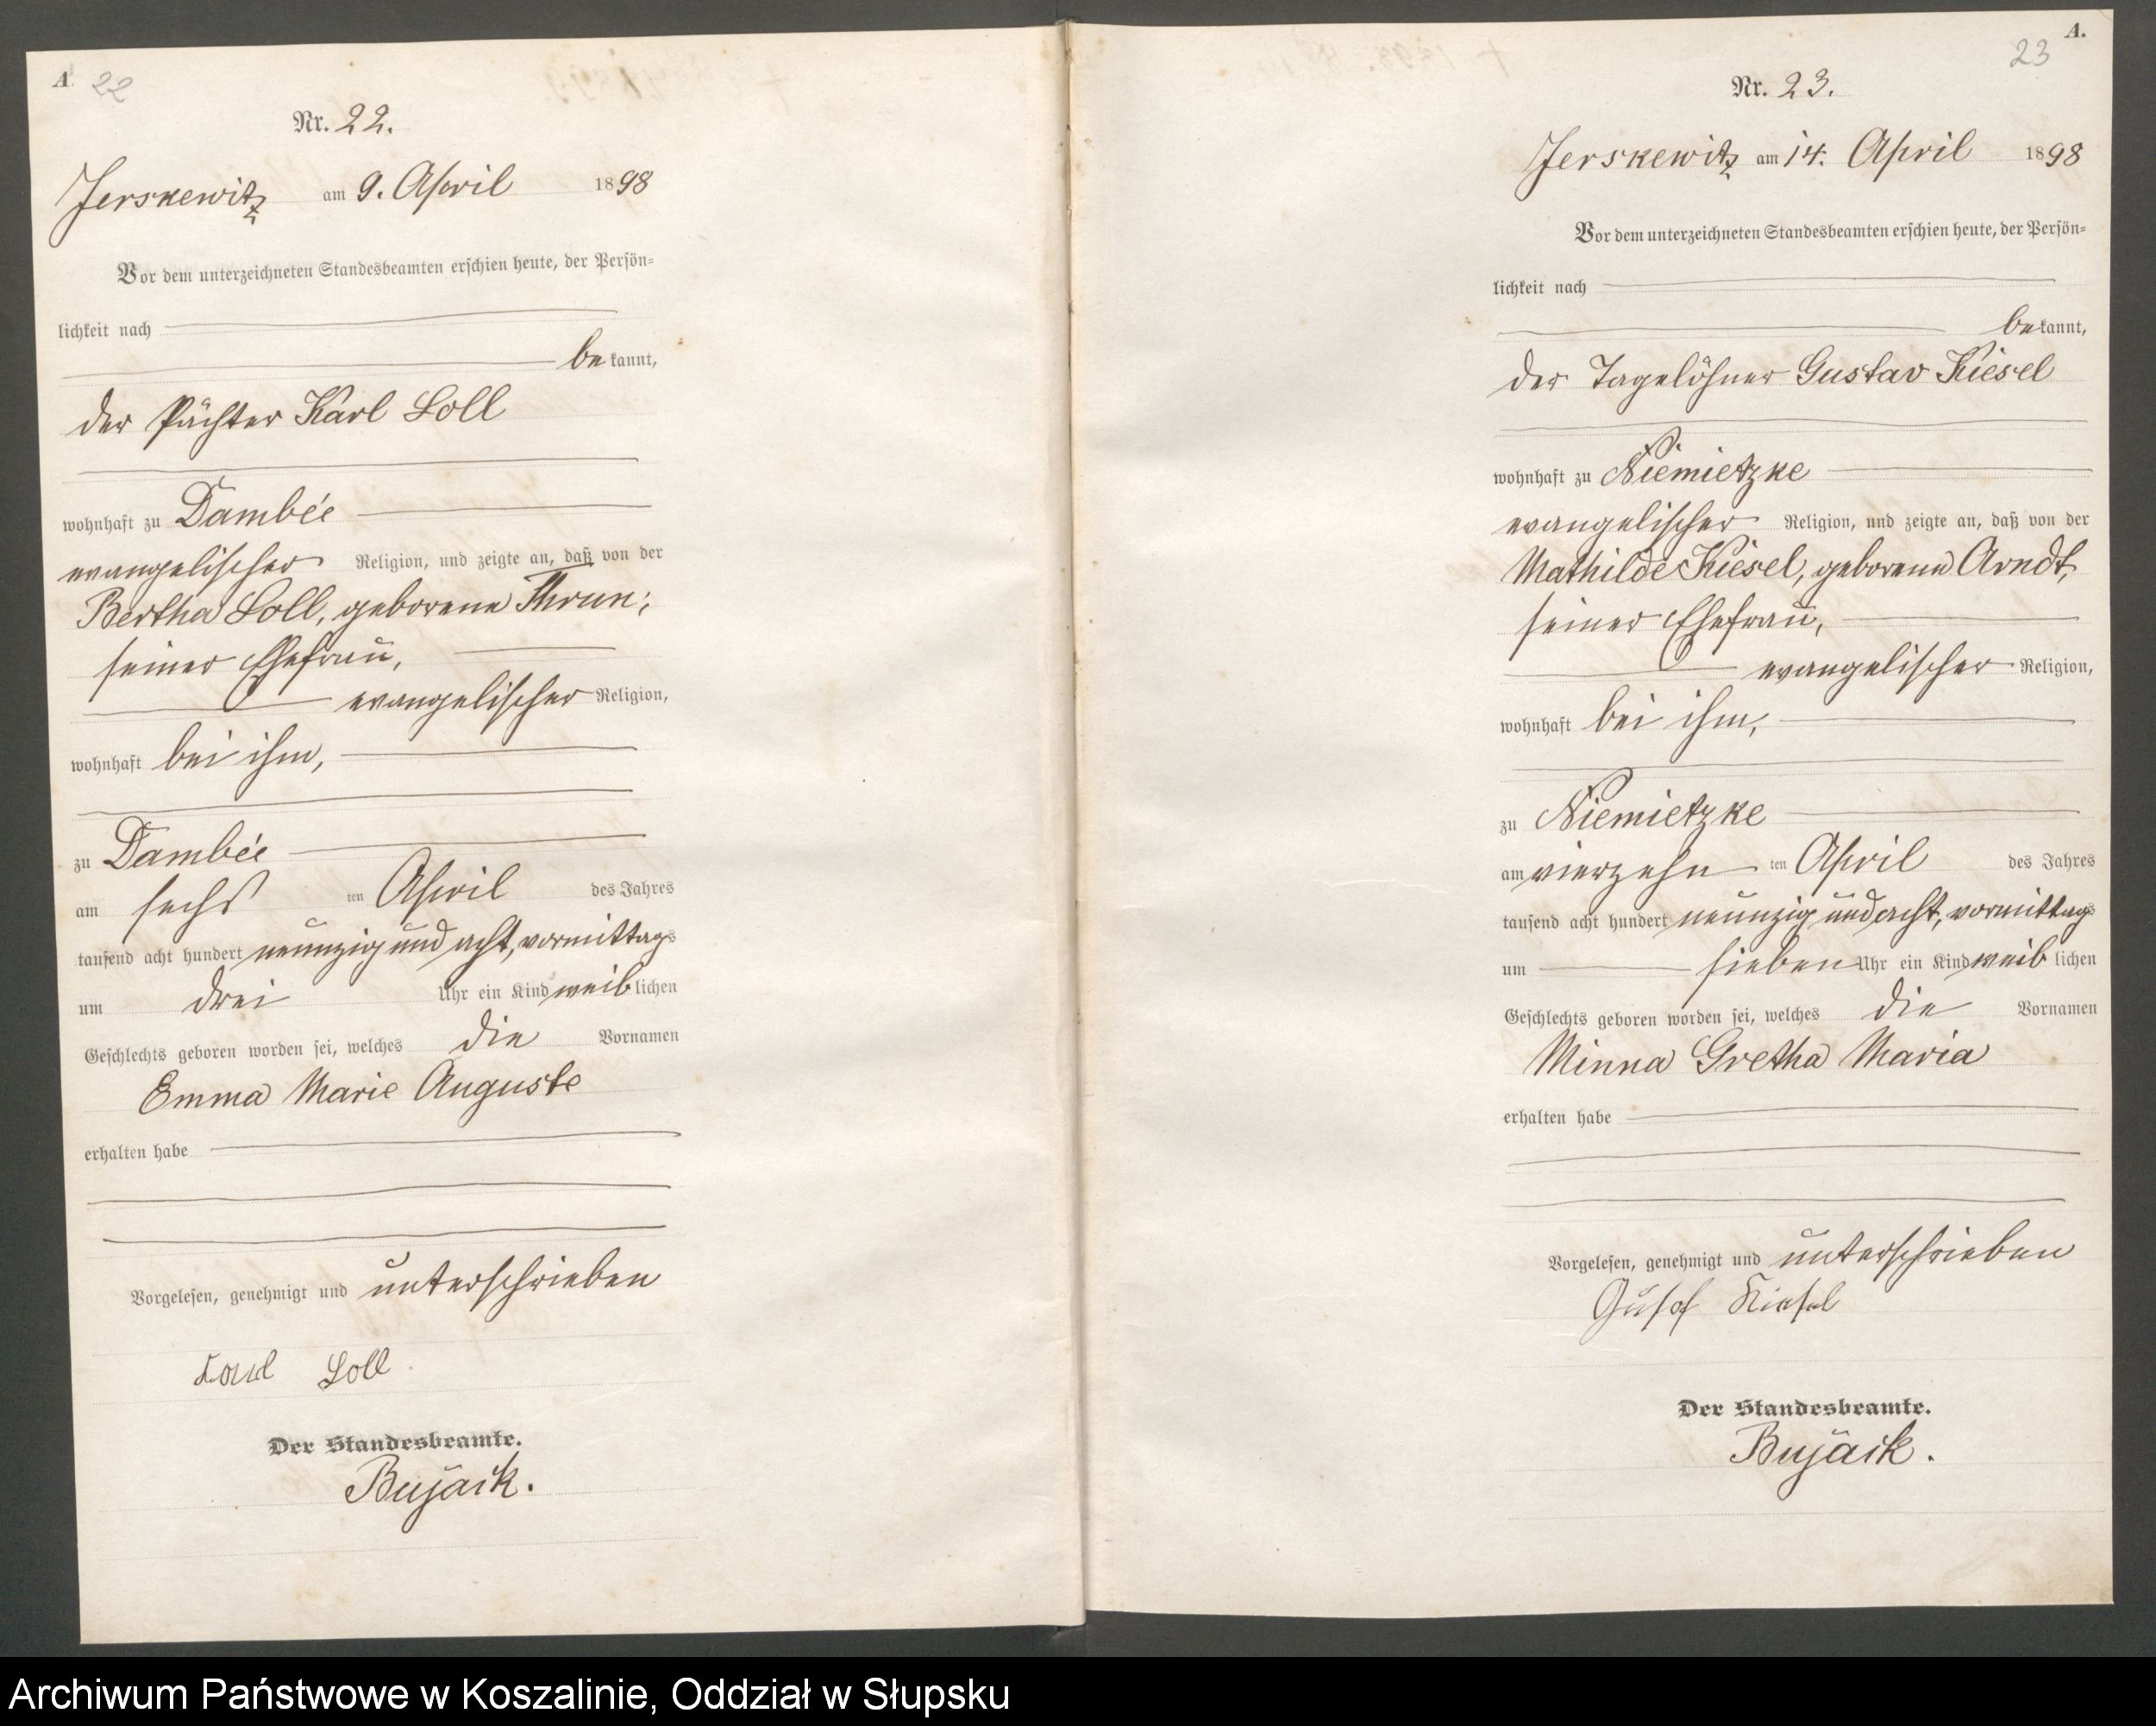 A 22
Nr. 22.
Jerskewitz am 9. April 1898
Vor dem unterzeichneten Standesbeamten erschien heute, der Persön-
lichkeit nach
bekannt,
der Pächter Karl Loll
wohnhaft zu Dambée
evangelischer Religion, und zeigte an, daß von der
Bertha Loll, geborene Thrun,
seiner Ehefrau,
evangelischer Religion,
wohnhaft bei ihm,
zu Dambée
am sechsten April des Jahres
tausend acht hundert neunzig und acht, vormittags
um drei Uhr ein Kind weiblichen
Geschlechts geboren worden sei, welches die Vornamen
Emma Marie Auguste
erhalten habe
Vorgelesen, genehmigt und unterschrieben
Karl Loll
Der Standesbeamte.
Bujack.
A.
23
Nr. 23.
Jerskewitz am 14. April 1898
Vor dem unterzeichneten Standesbeamten erschien heute, der Persön-
lichkeit nach
bekannt,
der Tagelöhner Gustav Kiesel
wohnhaft zu Niemietzke
evangelischer Religion, und zeigte an, daß von der
Mathilde Kiesel, geborene Arndt,
seiner Ehefrau,
evangelischer Religion,
wohnhaft bei ihm,
zu Niemietzke
am vierzehnten April des Jahres
tausend acht hundert neunzig und acht, vormittags
um sieben Uhr ein Kind weiblichen
Geschlechts geboren worden sei, welches die Vornamen
Minna Gretha Maria
erhalten habe
Vorgelesen, genehmigt und unterschrieben
Gustaf Kiesel
Der Standesbeamte.
Bujack.
Archiwum Państwowe w Koszalinie, Oddział w Słupsku